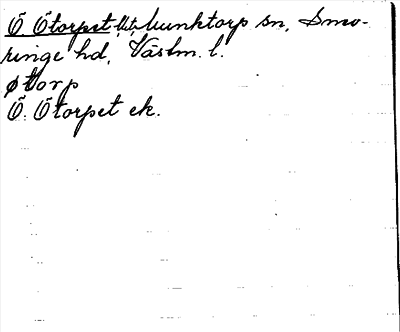 Ö Ötorpet, Munktorp sn, Snev-
ringe hd, Västm. l.
øtorp
Ö. Ötorpet ek.